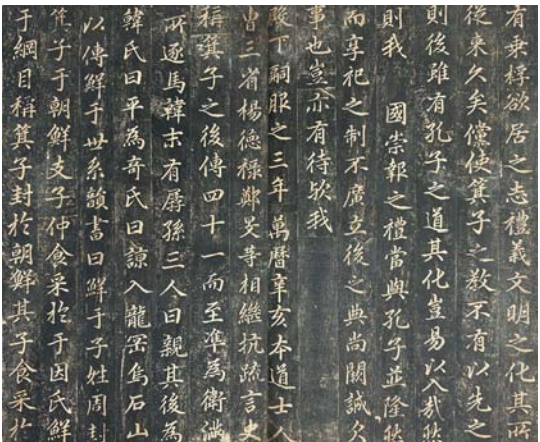 有乗桴欲居之志禮義文明之化其所
從来久矣儻使箕子之教不有以先之
則後雖有孔子之道其化豈易以入哉
則我 國崇報之禮當與孔子並隆
而享祀之制不廣立後之典尚闕誠欠
事也豈亦有待歟我
殿下嗣服之三年 萬曆辛亥本道士人
曺三省楊德祿鄭旻等相繼抗疏言史
稱箕子之後傳四十一而至準為衛滿
所逐馬韓末有孱孫三人曰親其後為
韓氏曰平為奇氏曰諒入龍罡烏石山
以傳鮮于世系韻書曰鮮于子姓周封
箕子于朝鮮支子仲食采於于因氏鮮
于綱目稱箕子封於朝鮮其子食采於